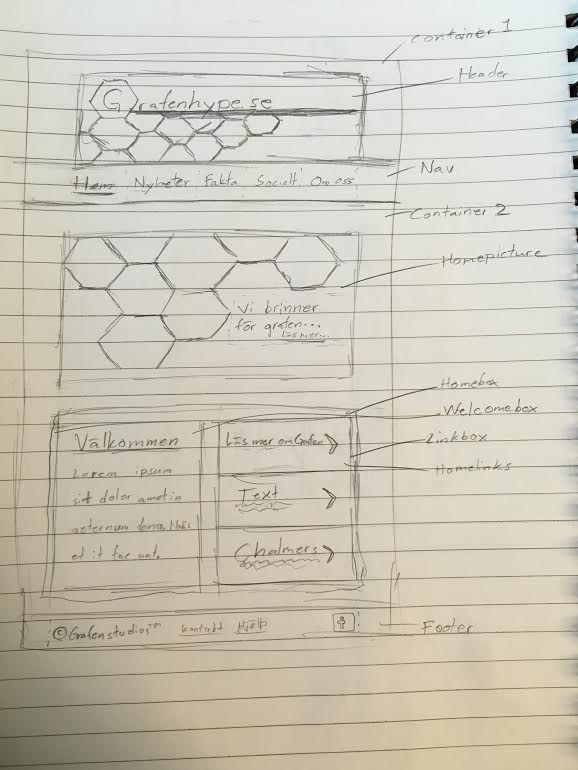 Container 1
Header
Grafenhype.se
Hem Nyheter Fakta Socialt Om oss
Nav
Container 2
Homepicture
Vi brinner
för grafen...
Läs mer...
Homebox
Welcomebox
Linkbox
Homelinks
Välkommen
Lorem ipsum
sit dolor amet in
aeternum
et it
Läs mer om Grafen >
Text >
Chalmers >
©Grafenstudios™ Kontakt Hjälp f
Footer